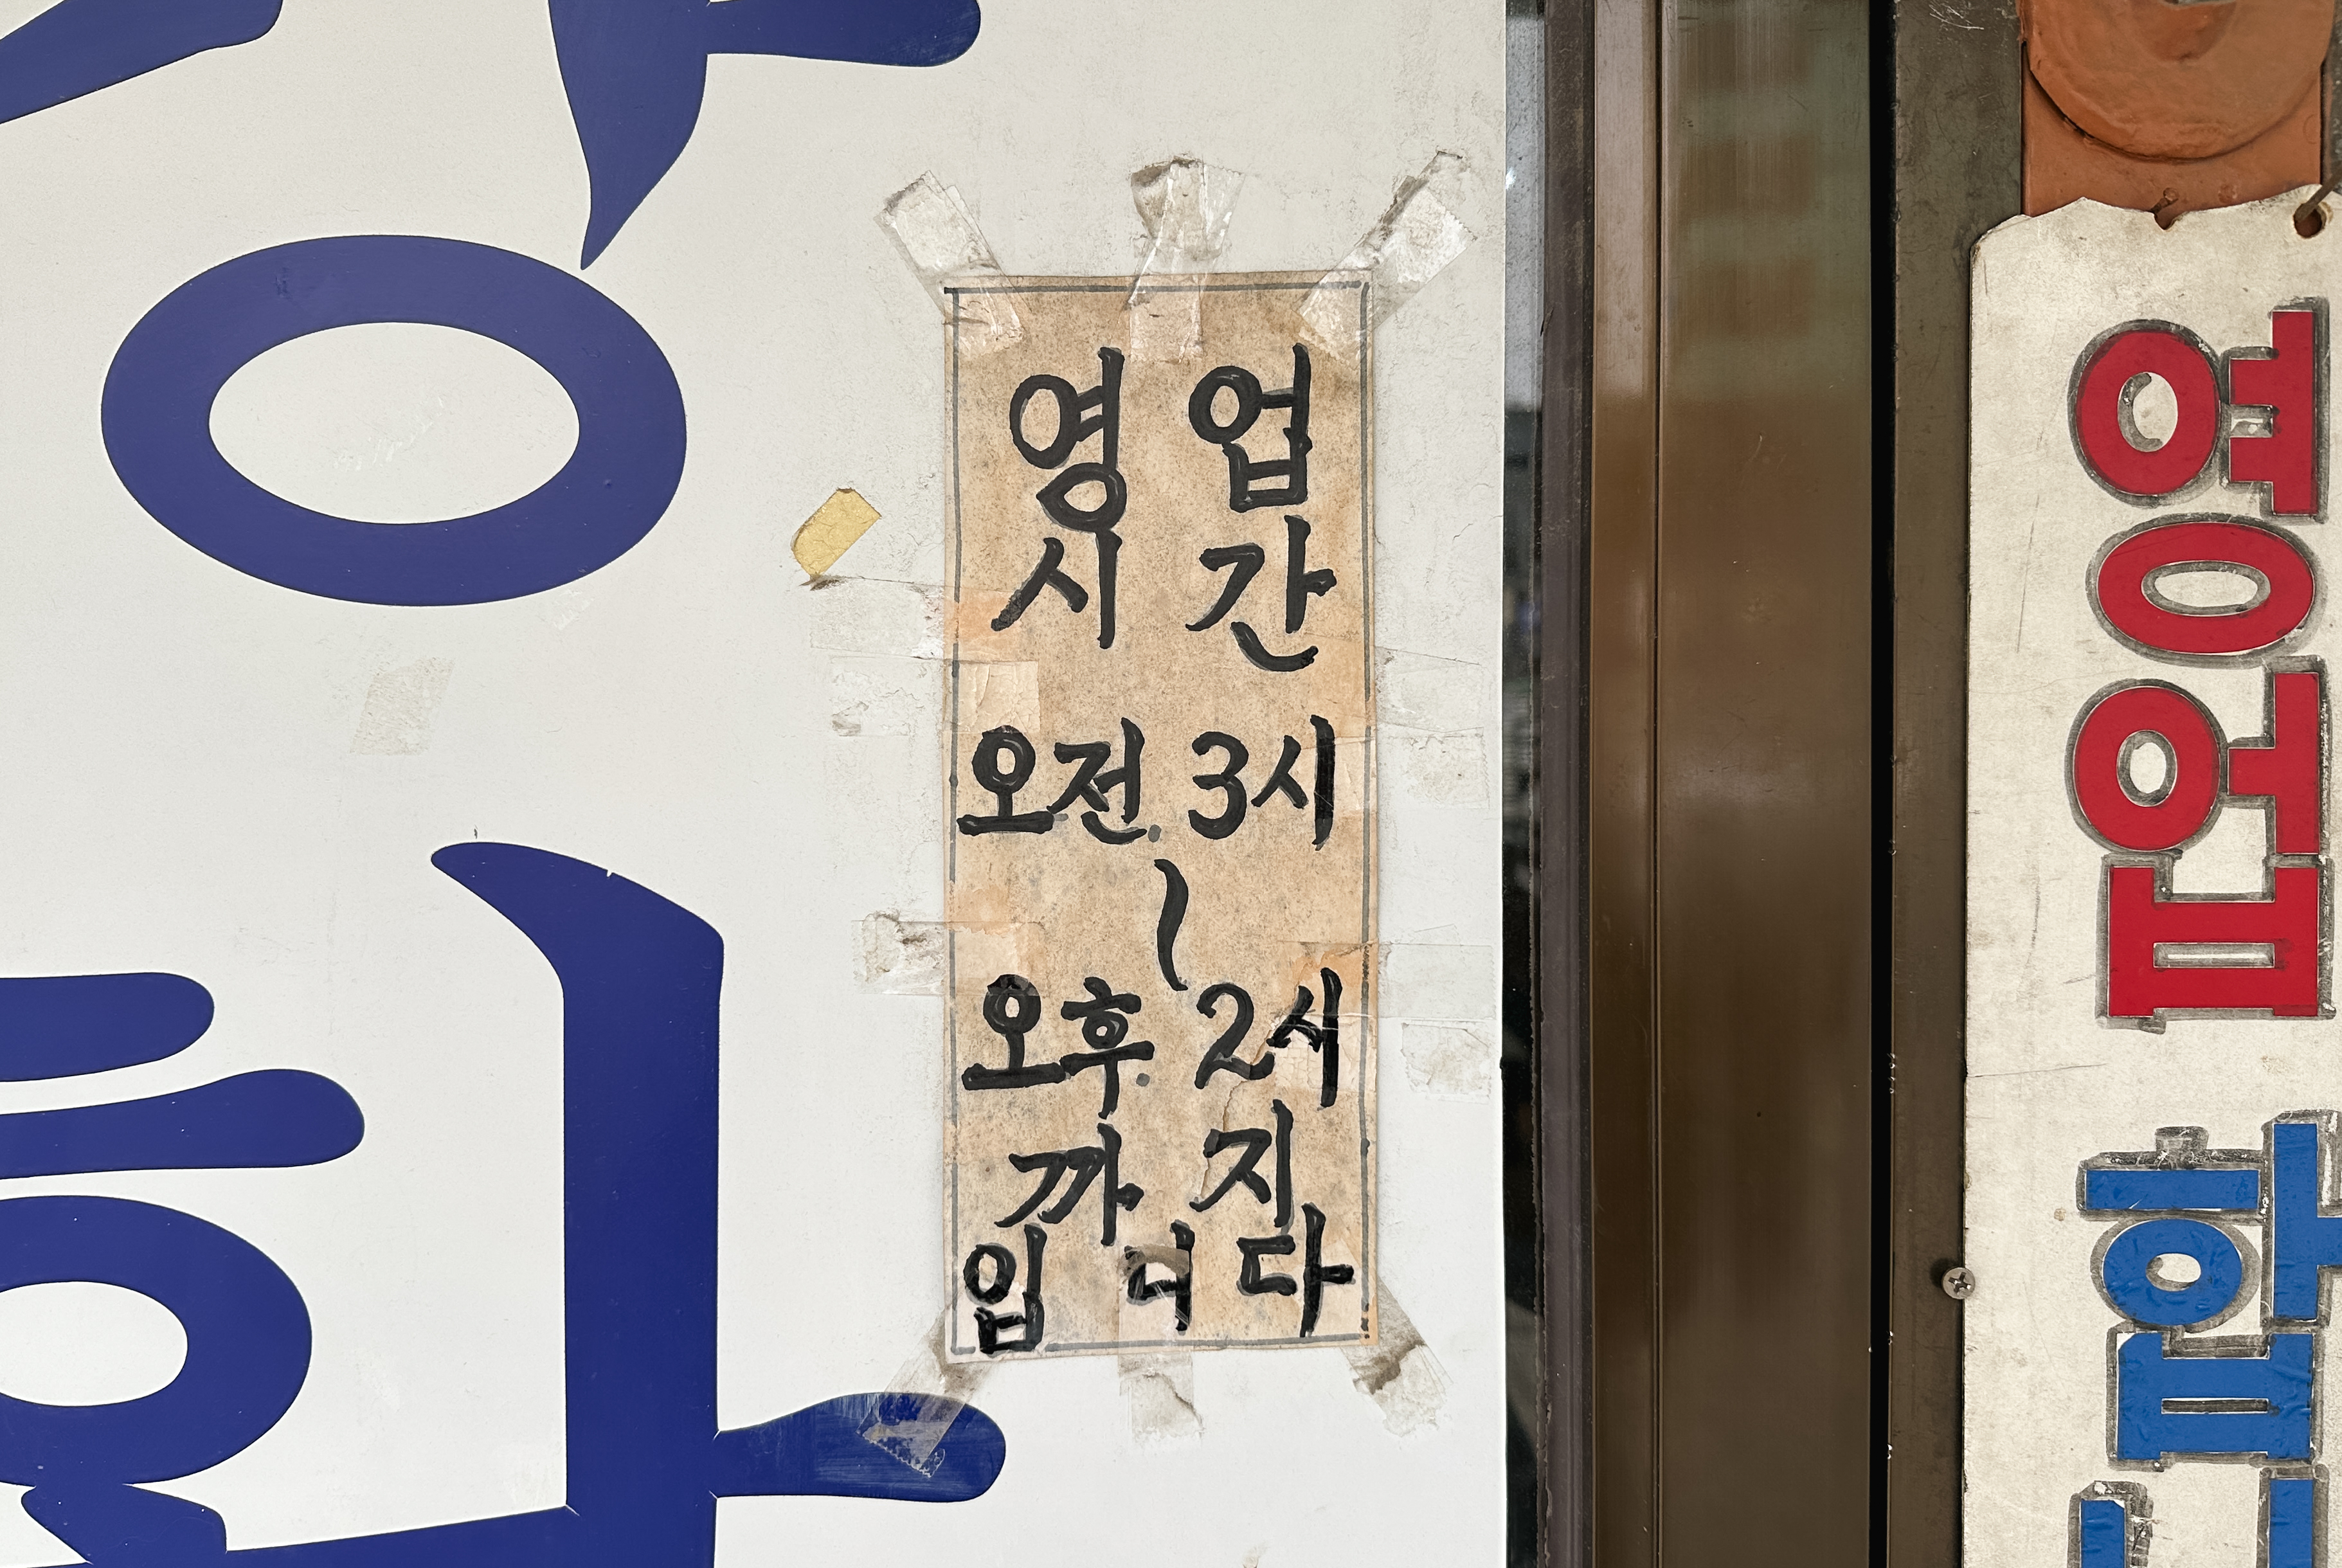 영업
시간
오전 3시
~
오후 2시
까지
입니다
영업
화